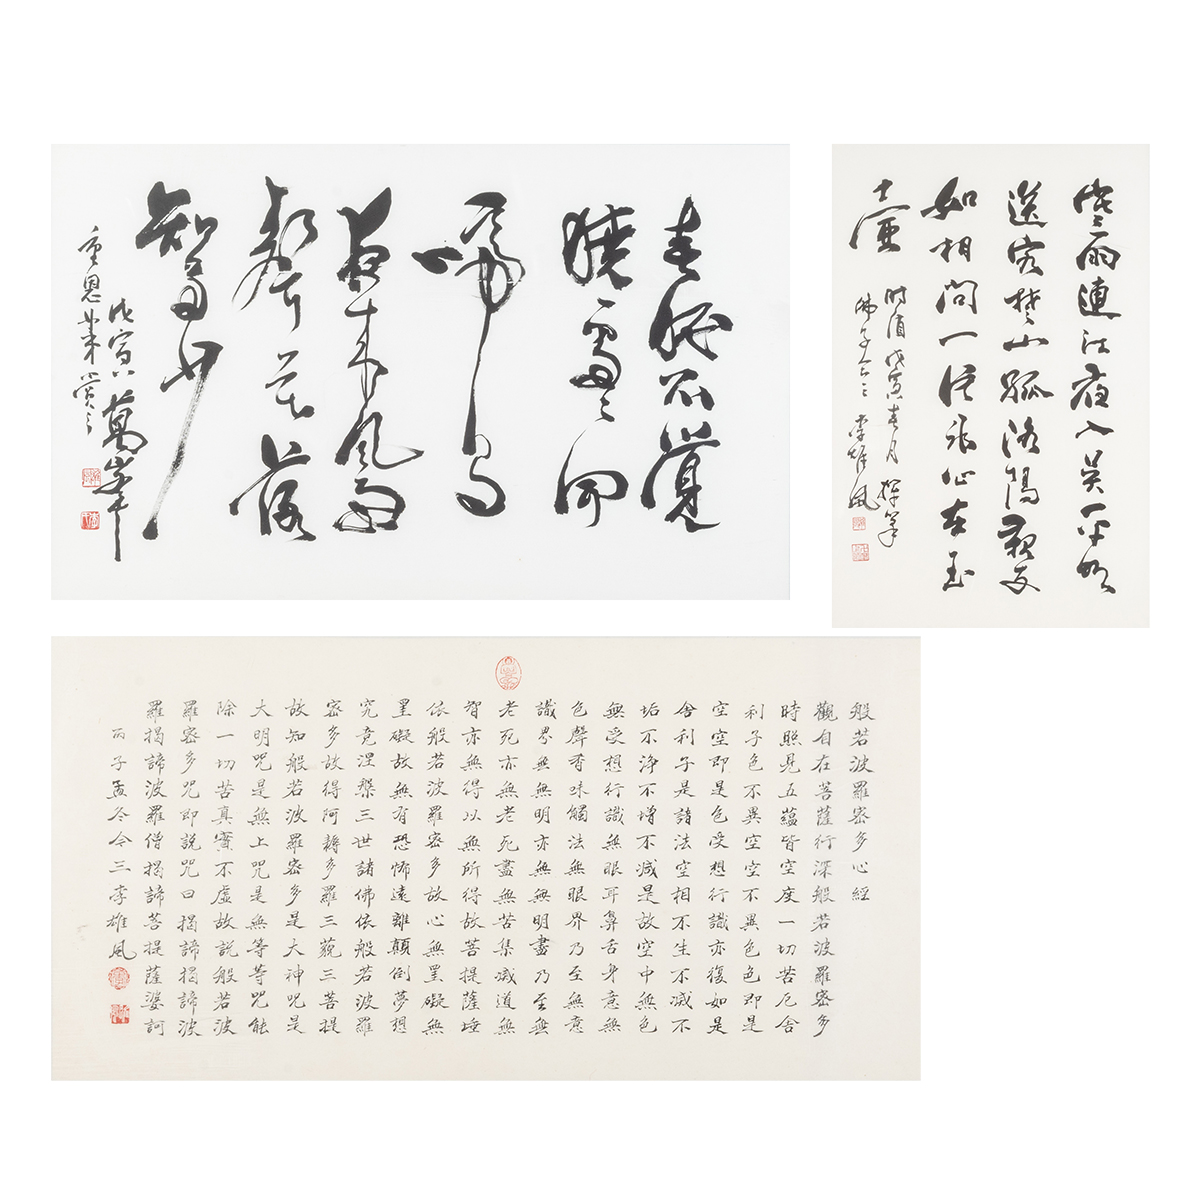 春眠不覺
曉處々聞
啼鳥
夜来風雨
聲花落
知多少
戊寅 葛峯
重恩 賞之
寒雨連江夜入吴平明
送客楚山孤洛陽親友
如相問一片冰心在玉
壺
時值戊寅春月揮筆
佛子令三李雄風
般若波羅密多心經
觀自在菩薩行深般若波羅密多
時照見五蘊皆空度一切苦厄舍
利子色不異空空不異色色即是
空空即是色受想行識亦復如是
舍利子是諸法空相不生不滅不
垢不淨不增不減是故空中無色
無受想行識無眼耳鼻舌身意無
色聲香味觸法無眼界乃至無意
識界無無明亦無無明盡乃至無
老死亦無老死盡無苦集滅道無
智亦無得以無所得故菩提薩埵
依般若波羅密多故心無罣礙無
罣礙故無有恐怖遠離顛倒夢想
究竟涅槃三世諸佛依般若波羅
密多故得阿耨多羅三藐三菩提
故知般若波羅密多是大神咒是
大明咒是無上咒是無等等咒能
除一切苦真實不虛故說般若波
羅密多咒即說咒曰揭諦揭諦波
羅揭諦波羅僧揭諦菩提薩婆訶
丙子孟冬令三李雄風